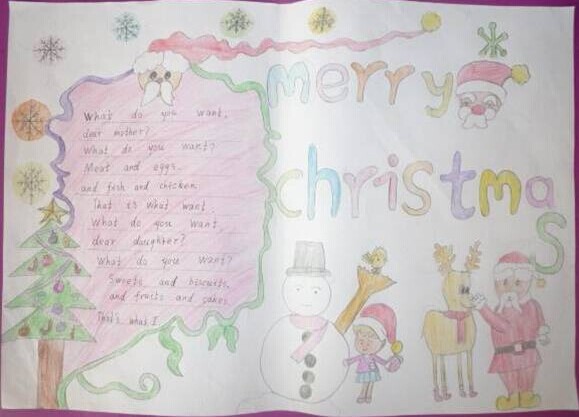 What do you want,
dear mother?
What do you want?
Meat and eggs.
and fish and chicken.
That is what want.
What do you want
dear daughter?
What do you want?
Sweets and biscuits,
and fruits and cakes.
That's what I
merry
christmas